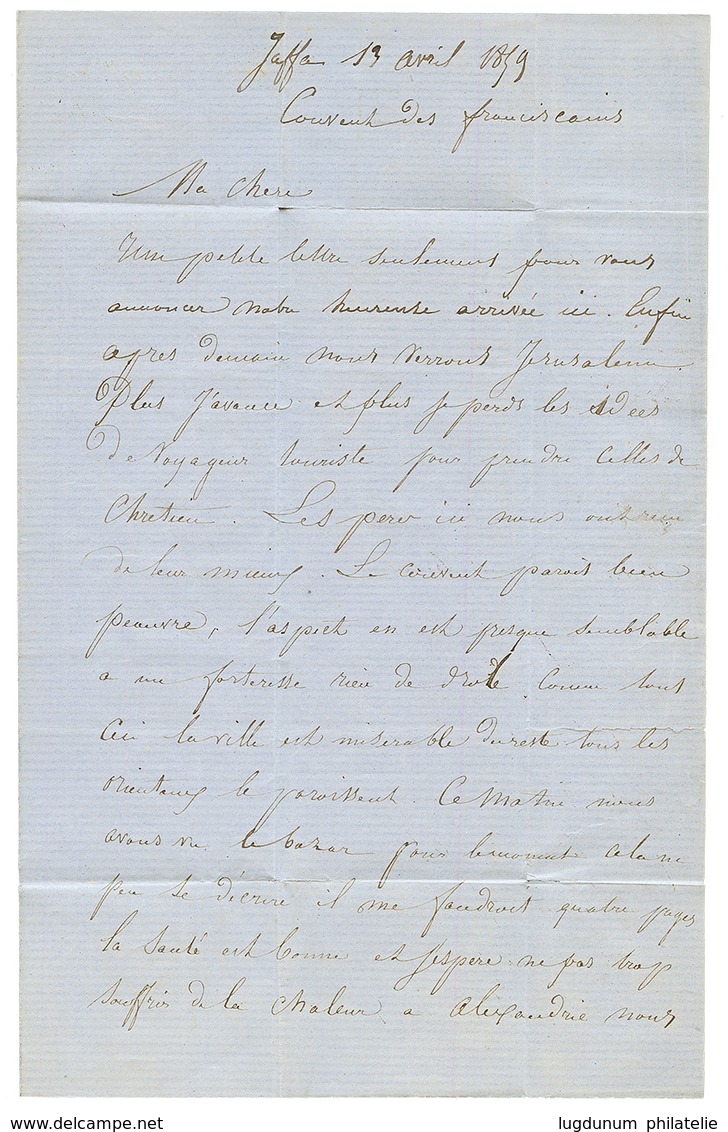 Jaffa 13 avril 1859
Couvent des franciscains
Ma chere
Une petite lettre seulement pour vous
annoncer notre heureuse arrivée ici. Enfin
apres demain nous verrons Jerusalem.
Plus J'avance et plus je perds les idées
de Voyageur touriste pour prendre celles de
Chretien. Les peres ici nous ont recu
de leur mieux. Le couvent paroit bien
peauvre, l'aspect en est presque semblable
a une forteresse rien de drole comme tout
ceci la ville est miserable du reste tous les
orientaux le paroissent. Ce Matin nous
avons vu le bazar pour le moment cela ne
peu se décrire il me faudroit quatre pages
la Santé est bonne et J'espere ne pas trop
souffrir de la chaleur a alexandrie nous
lugdunum philatelie